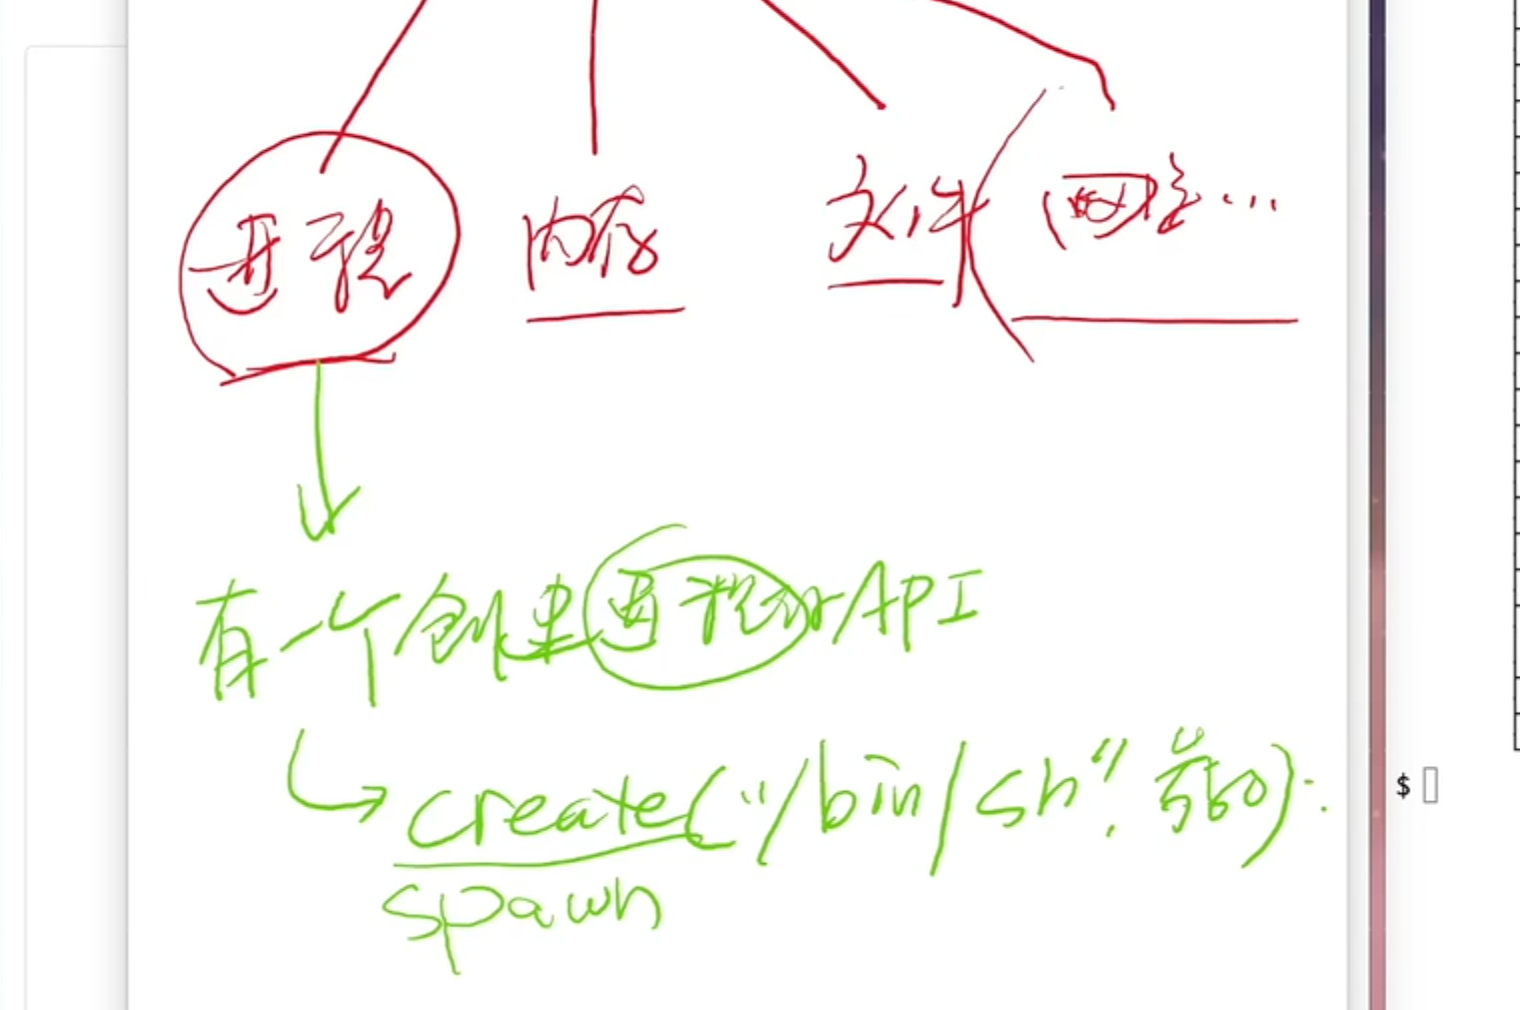 进程 内存 文件 (网络...
有一个创建进程的API
create("/bin/sh", 参数);
spawn
$